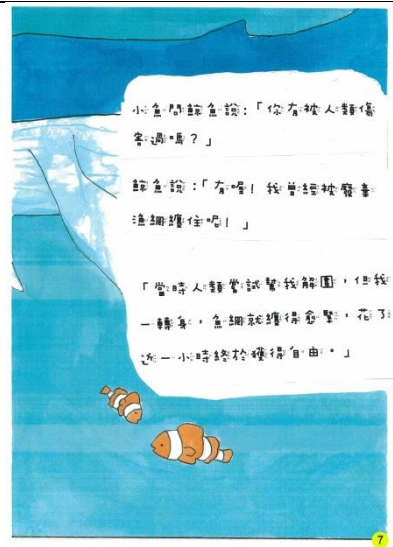 小魚問鯨魚說:「你有被人類傷
害過嗎?」
鯨魚說:「有喔!我曾經被廢棄
漁網纏住呢!」
「當時人類嘗試幫我解圍,但我
一轉身,魚網就纏得愈緊,花了
近一小時終於獲得自由。」
7